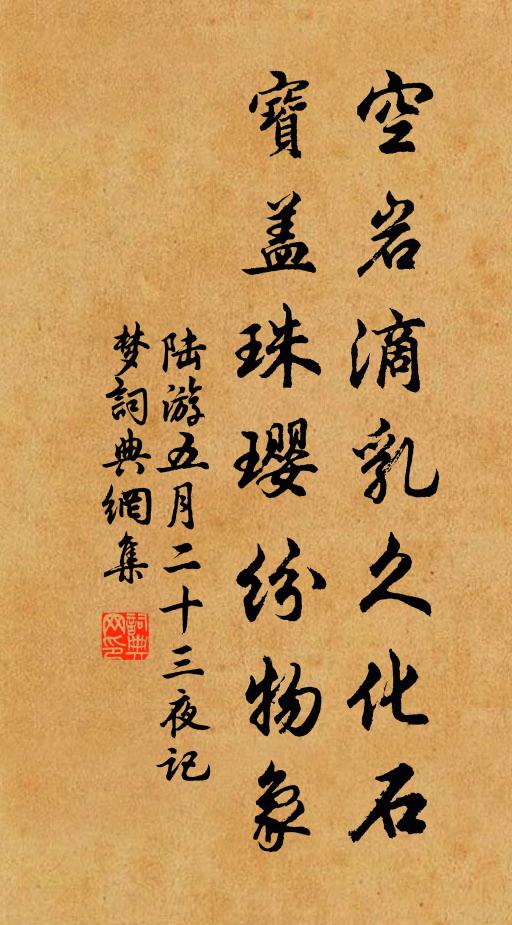 空岩滴乳久化石
寶盖珠瓔纷物象
陆游五月二十三夜记
梦詞典網集
詞典网印